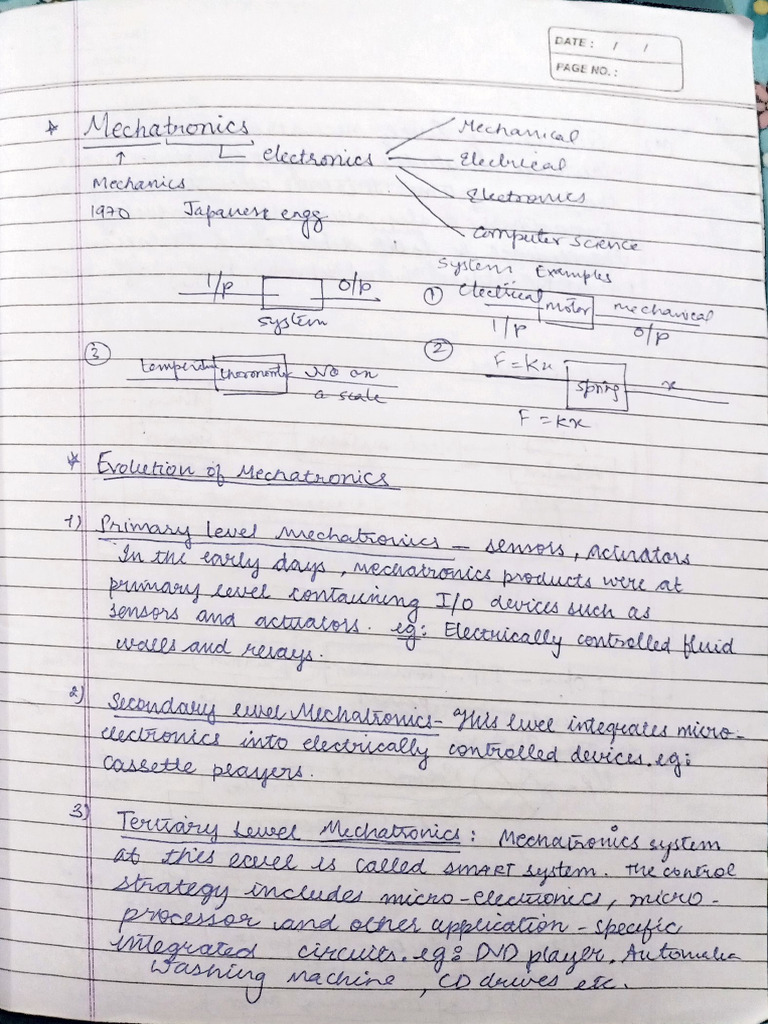 DATE: / /
PAGE NO.:
* Mechatronics
electronics
Mechanical
Electrical
Electronics
Computer science
Mechanics
1970 Japanese engg
I/p O/p
system
System Examples
① Electrical motor mechanical
I/p O/p
③ thermomete No on
a scale
② F=Kx spring x
F=kx
* Evolution of Mechatronics
1) Primary level Mechatronics - sensors, Actuators
In the early days, mechatronics products were at
primary level containing I/O devices such as
sensors and actuators. eg: Electrically controlled fluid
valves and relays.
2) Secondary level Mechatronics - This level integrates micro-
electronics into electrically controlled devices. eg:
cassette players.
3) Tertiary Level Mechatronics: Mechatronics system
at this level is called SMART system. The control
strategy includes micro-electronics, micro-
processor and other application-specific
integrated circuits. eg: DVD player, Automatic
Washing Machine, CD drives etc.